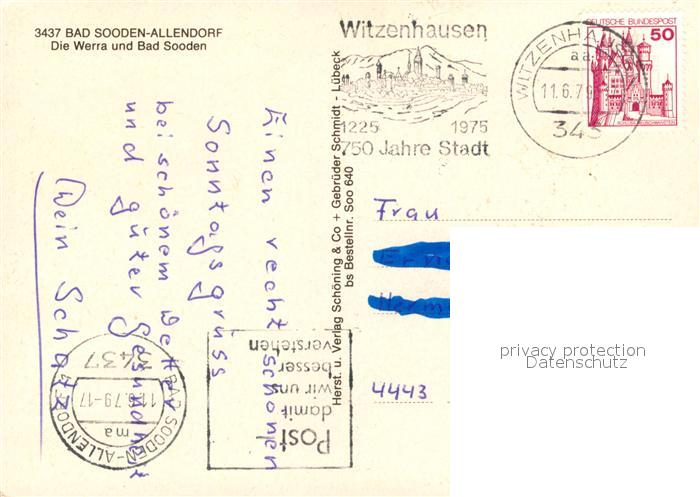 3437 BAD SOODEN-ALLENDORF
Die Werra und Bad Sooden
Witzenhausen
1225 1975
750 Jahre Stadt
WITZENHAUSEN
aa
11.6.79
343
DEUTSCHE BUNDESPOST
50
SCHLOSS NEUSCHWANSTEIN
Herst. u. Verlag Schöning & Co + Gebrüder Schmidt - Lübeck
bs Bestellnr. Soo 640
Einen recht schönen
Sonntagsgruss
bei schönem Wetter
und guter Gesundheit
Dein Schatz
Frau
4443
privacy protection
Datenschutz
Post
damit
wir uns
besser
verstehen
3437
BAD SOODEN-ALLENDORF
11.6.79-17
ma